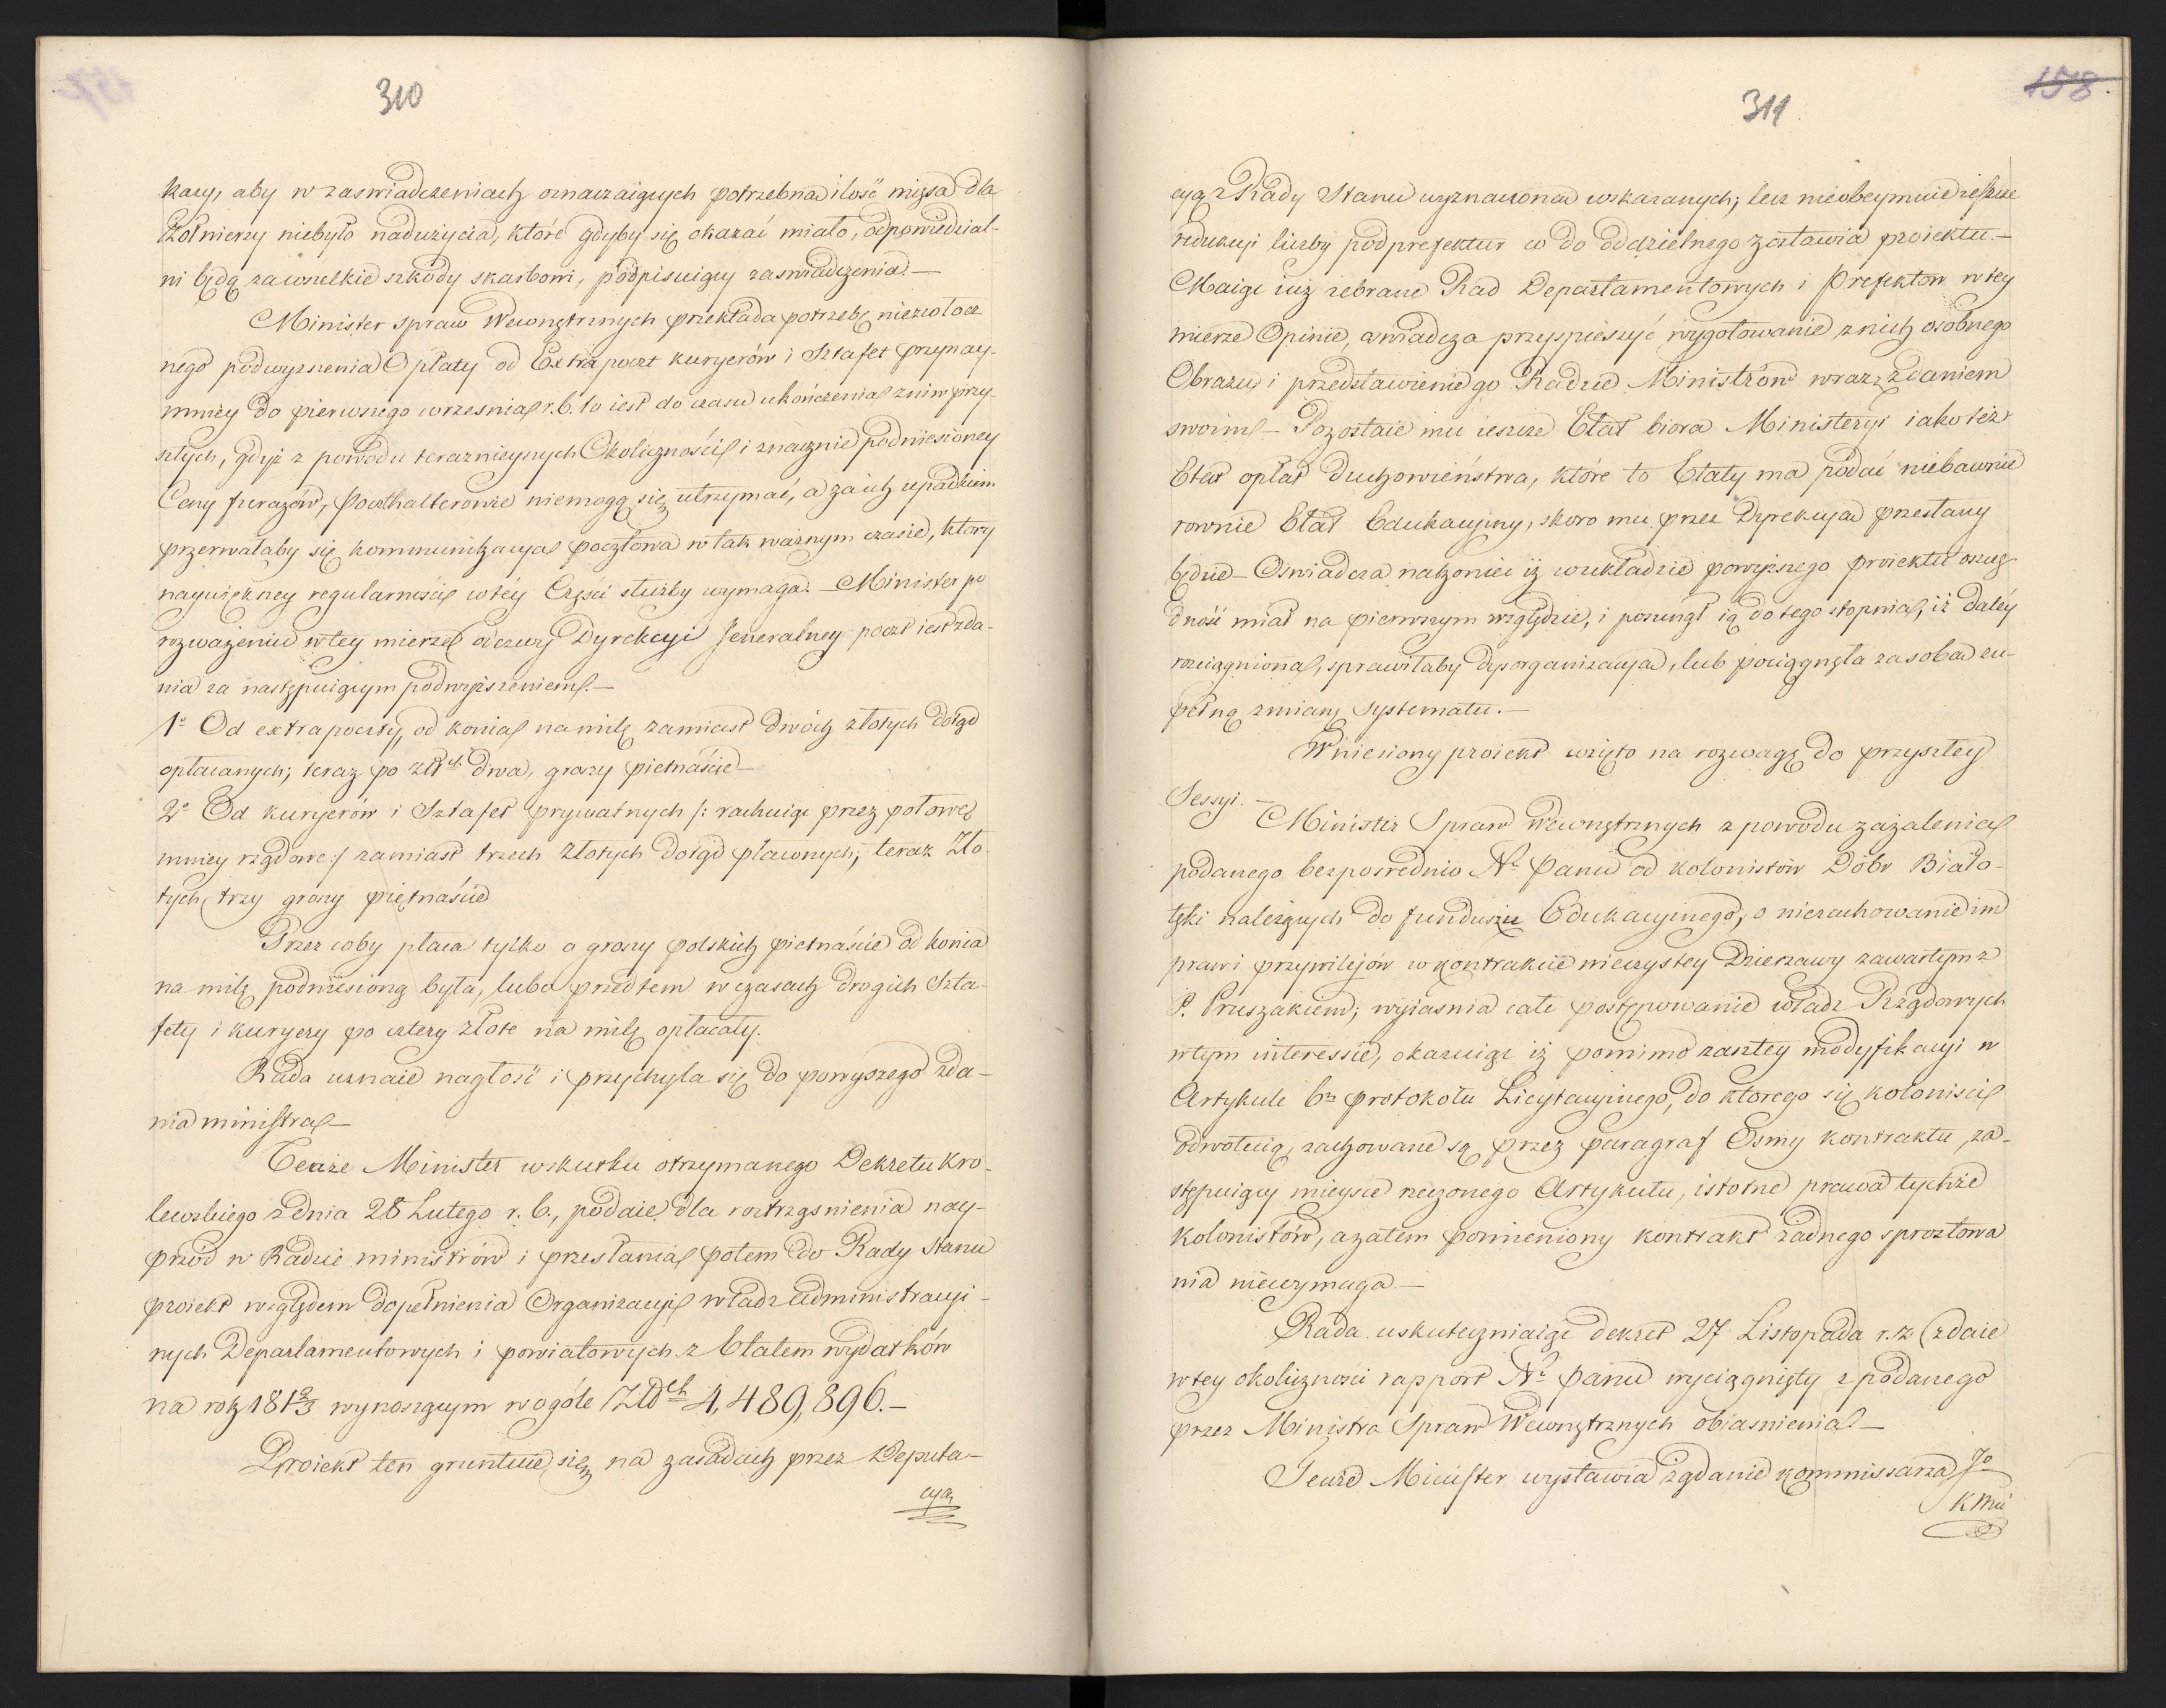 310
kazy, aby w zaswiadczeniach oznaczaiących potrzebna ilość mięsa dla
Żołnierzy niebyło nadużycia, które gdyby się okazać miało, odpowiedzial-
ni będą za wszelkie szkody skarbowi, podpisuiący zaswiadczenia.—
Minister spraw Wewnętrznych przekłada potrzebę niezwłocz
nego podwyzszenia Opłaty od Extrapoczt kuryerów i Sztafet przynay-
mniey do pierwszego wrzesnia r. b. to iest do czasu ukończenia zniw przy-
szłych, gdyż z powodu teraznieyszych Okoliczności i znacznie podniesioney
Ceny furażów, Poczthalterowie niemogą się utrzymać, a za ich upadkiem
przerwałaby się kommunikacya pocztowa w tak ważnym czasie, który
naywiększey regularności w tey Części służby wymaga. — Minister po
rozważeniu w tey mierze odezwy Dyrekcyi Jeneralney poczt iest zda-
nia za następuiącym podwyższeniem.—
1o Od extrapoczty, od konia na milę zamiast dwóch złotych dotąd
opłacanych; teraz po złtch dwa, groszy pietnaście—
2o Od kuryerów i Sztafet prywatnych /: rachuiąc przez połowę
mniey rządowe :/ zamiast trzech złotych dotąd płaconych; teraz Zło-
tych trzy groszy piętnaście
Przez coby płaca tylko o groszy polskich pietnaście od konia
na milę podniesioną była, lubo przedtem w czasach drogich Szta-
fety i kuryery po cztery złote na milę opłacały.
Rada uznaie nagłość i przychyla się do powyszego zda-
nia ministra—
Tenże Minister wskutku otrzymanego Dekretu Kro-
lewskiego z dnia 28 Lutego r. b., podaie dla roztrząsnienia nay-
przód w Radzie ministrów i przesłania potem do Rady stanu
proiekt względem dopełnienia Organizacyi władz Administracyi-
nych Departamentowych i powiatowych z Etatem wydatków
na rok 1812/3 wynoszącym w ogóle Złtch 4,489,896.—
Proiekt ten gruntuie się na zasadach przez Deputa-
cyą
158
311
cyą z Rady Stanu wyznaczona wskazanych; lecz nieobeymuie ieszcze
redukcyi liczby podprefektur co do oddzielnego zostawia proiektu.—
Maiąc iuz zebrane Rad Departamentowych i Prefektow w tey
mierze Opinie, oswiadcza przyspieszyć wygotowanie z nich osobnego
Obrazu i przedstawienie go Radzie Ministrów wraz z zdaniem
swoim — Pozostaie mu ieszcze Etat biora Ministeryi iako też
Etat opłat Duchowieństwa, które to Etaty ma podać niebawnie
rownie Etat Edukacyiny, skoro mu przez Dyrekcyą przesłany
będzie — Oswiadcza nakoniec iż w układzie powyższego proiektu oszczę
dność miał na pierwszym względzie, i posunął ią do tego stopnia, iż daléy
rozciągniona, sprawiłaby dysorganizacyą, lub pociągnęła za soba zu-
pełną zmianę systematu.—
Wniesiony proiekt wzięto na rozwagę do przyszłey
Sessyi.—
Minister Spraw Wewnętrznych z powodu zażalenia
podanego bezposrednio N. Panu od kolonistów Dóbr Biało-
łęki należących do funduszu Edukacyinego, o niezachowanie im
praw i przywilejów w kontrakcie wieczystey Dzierzawy zawartym z
P. Pruszakiem; wyiasnia całe postępowanie władz Rządowych
w tym interessie, okazuiąc iż pomimo zaszłey modyfikacyi w
Artykule 6m protokołu Licytacyinego, do ktorego się koloniści
odwołuią, zachowane są przez paragraf Osmy kontraktu, za-
stępuiący mieysce rzeczonego Artykułu, istotne prawa tychże
kolonistów, a zatem pomieniony kontrakt żadnego sprostowa
nia niewymaga.—
Rada uskuteczniaiąc dekret 27 Listopada r. z. zdaie
w tey okoliczności rapport N. Panu wyciągnięty z podanego
przez Ministra Spraw Wewnętrznych obiasnienia—
Tenże Minister wystawia żądanie kommissarza Jo
K Mci